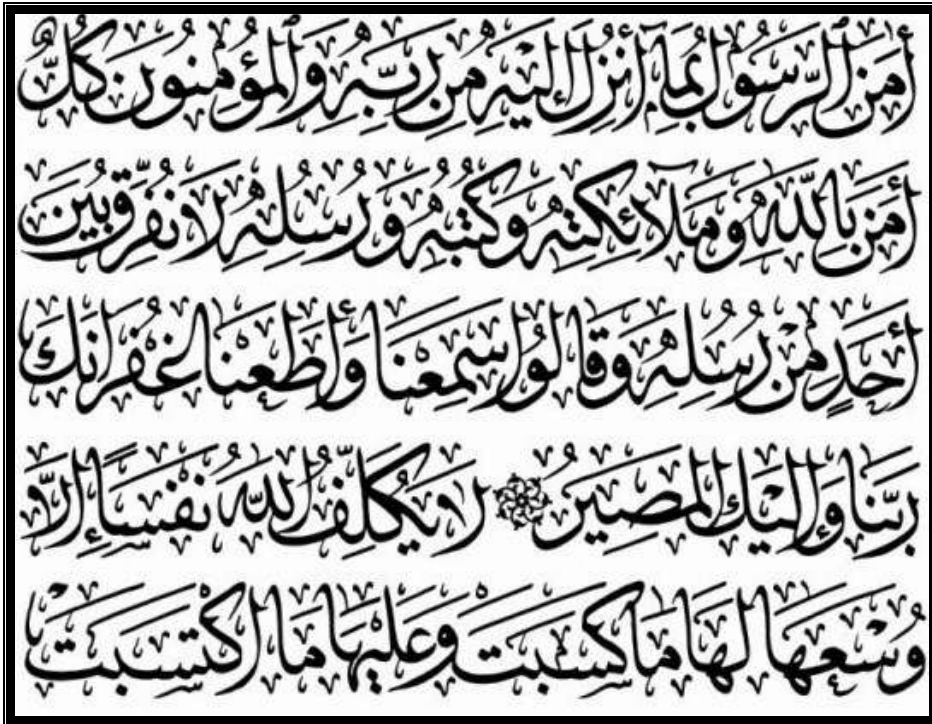 آمَنَ ٱلرَّسُولُ بِمَآ أُنْزِلَ إِلَيْهِ مِنْ رَبِّهِ وَٱلْمُؤْمِنُونَ كُلٌّ
آمَنَ بِاللَّهِ وَمَلَآئِكَتِهِ وَكُتُبِهِ وَرُسُلِهِ لَا نُفَرِّقُ بَيْنَ
أَحَدٍ مِنْ رُسُلِهِ وَقَالُوا سَمِعْنَا وَأَطَعْنَا غُفْرَانَكَ
رَبَّنَا وَإِلَيْكَ الْمَصِيرُ ۞ لَا يُكَلِّفُ اللَّهُ نَفْسًا إِلَّا
وُسْعَهَا لَهَا مَا كَسَبَتْ وَعَلَيْهَا مَا اكْتَسَبَتْ